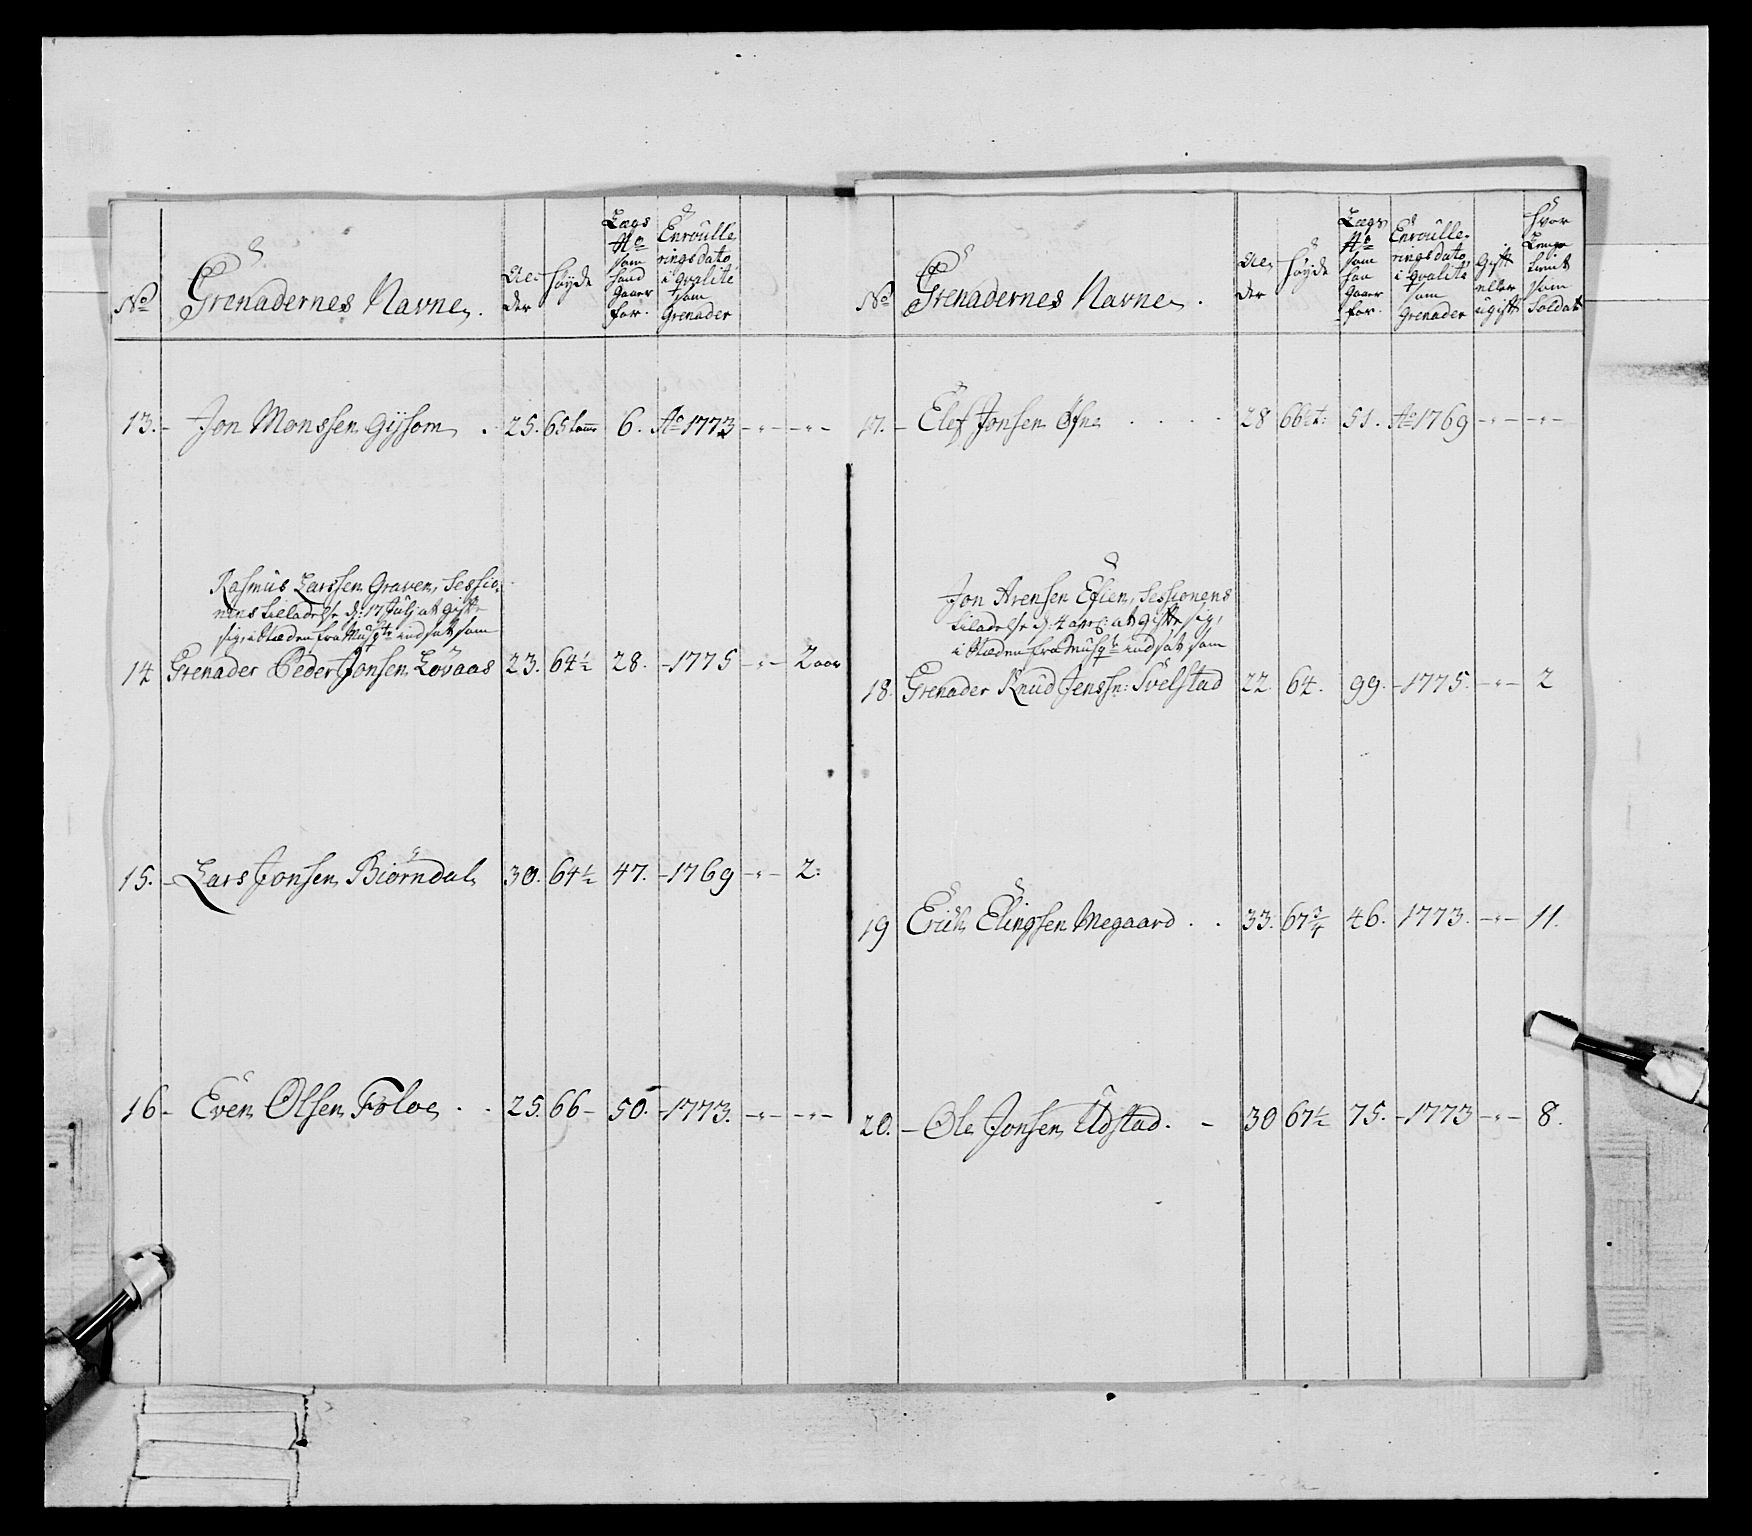 No
Grenadernes Navne.
Al=
der
Høyde
Lægs
No
som
hand
gaaer
for.
Enroulle
rings dato
i qvalité
som
Grenader
13. - Jon Monssen Gysom . 25. 65 tomr 6. Ao 1773 -"- -"-
Rasmus Larssen Graven, Sessio-
nens tilladelse d: 17 Julj at gifte
sig, i Stæden fra Musqtr indsat som
14 Grenader Peder Jonsen Løvaas 23. 64½ 28. - 1775 -"- 2 aar
15. - Lars Jonsen Biørndal 30. 64½ 47. - 1769 -"- 2:
16 - Even Olsen Foloe . . 25. 66 - 50. - 1773. -"- -"-
No
Grenadernes Navne .
Al=
der
Høyde
Lægs
No
som
han
gaaer
for.
Enroulle-
rings dato
i qvalité
som
Grenader
Gift
eller
ugift
Hvor
Længe
tient
som
Soldat
17. - Elef Jonsen . . . . 28 66 51. Ao 1769 -"- -"-
Jon Arensen Efien, Sessionens
tiladelse d: 4 apr: at gifte sig,
i Stæden fra Musqt indsat som
18. Grenader Knud Jenssn: Svelstad 22. 64. 99. - 1775. -"- 2
19 Erich Elingsen Megaard . . 33. 67¾ 46. 1773. -"- 11.
20. - Ole Jonsen Udstad. - 30 67½ 75. - 1773 -"- 8.